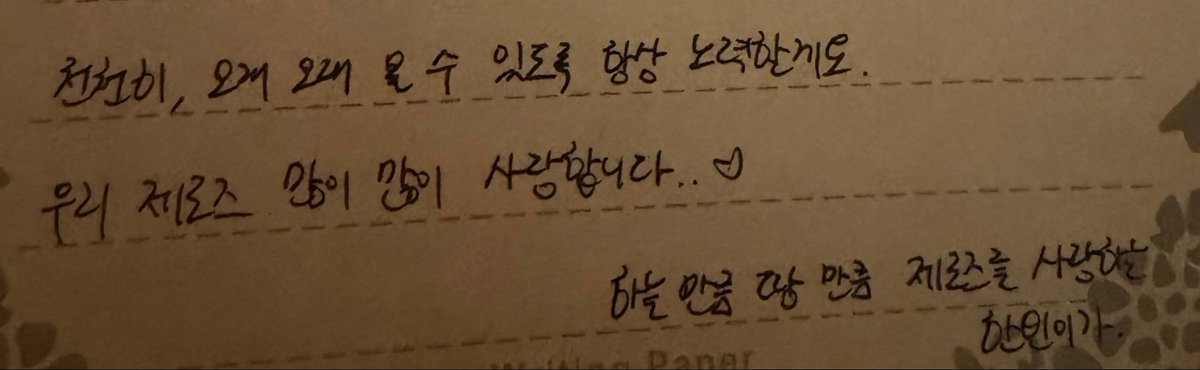 천천히, 오래 오래 올 수 있도록 항상 노력할게요.
우리 제로즈 많이 많이 사랑합니다..♡
하늘 만큼 땅 만큼 제로즈를 사랑하는
한빈이가.
Writing Paper